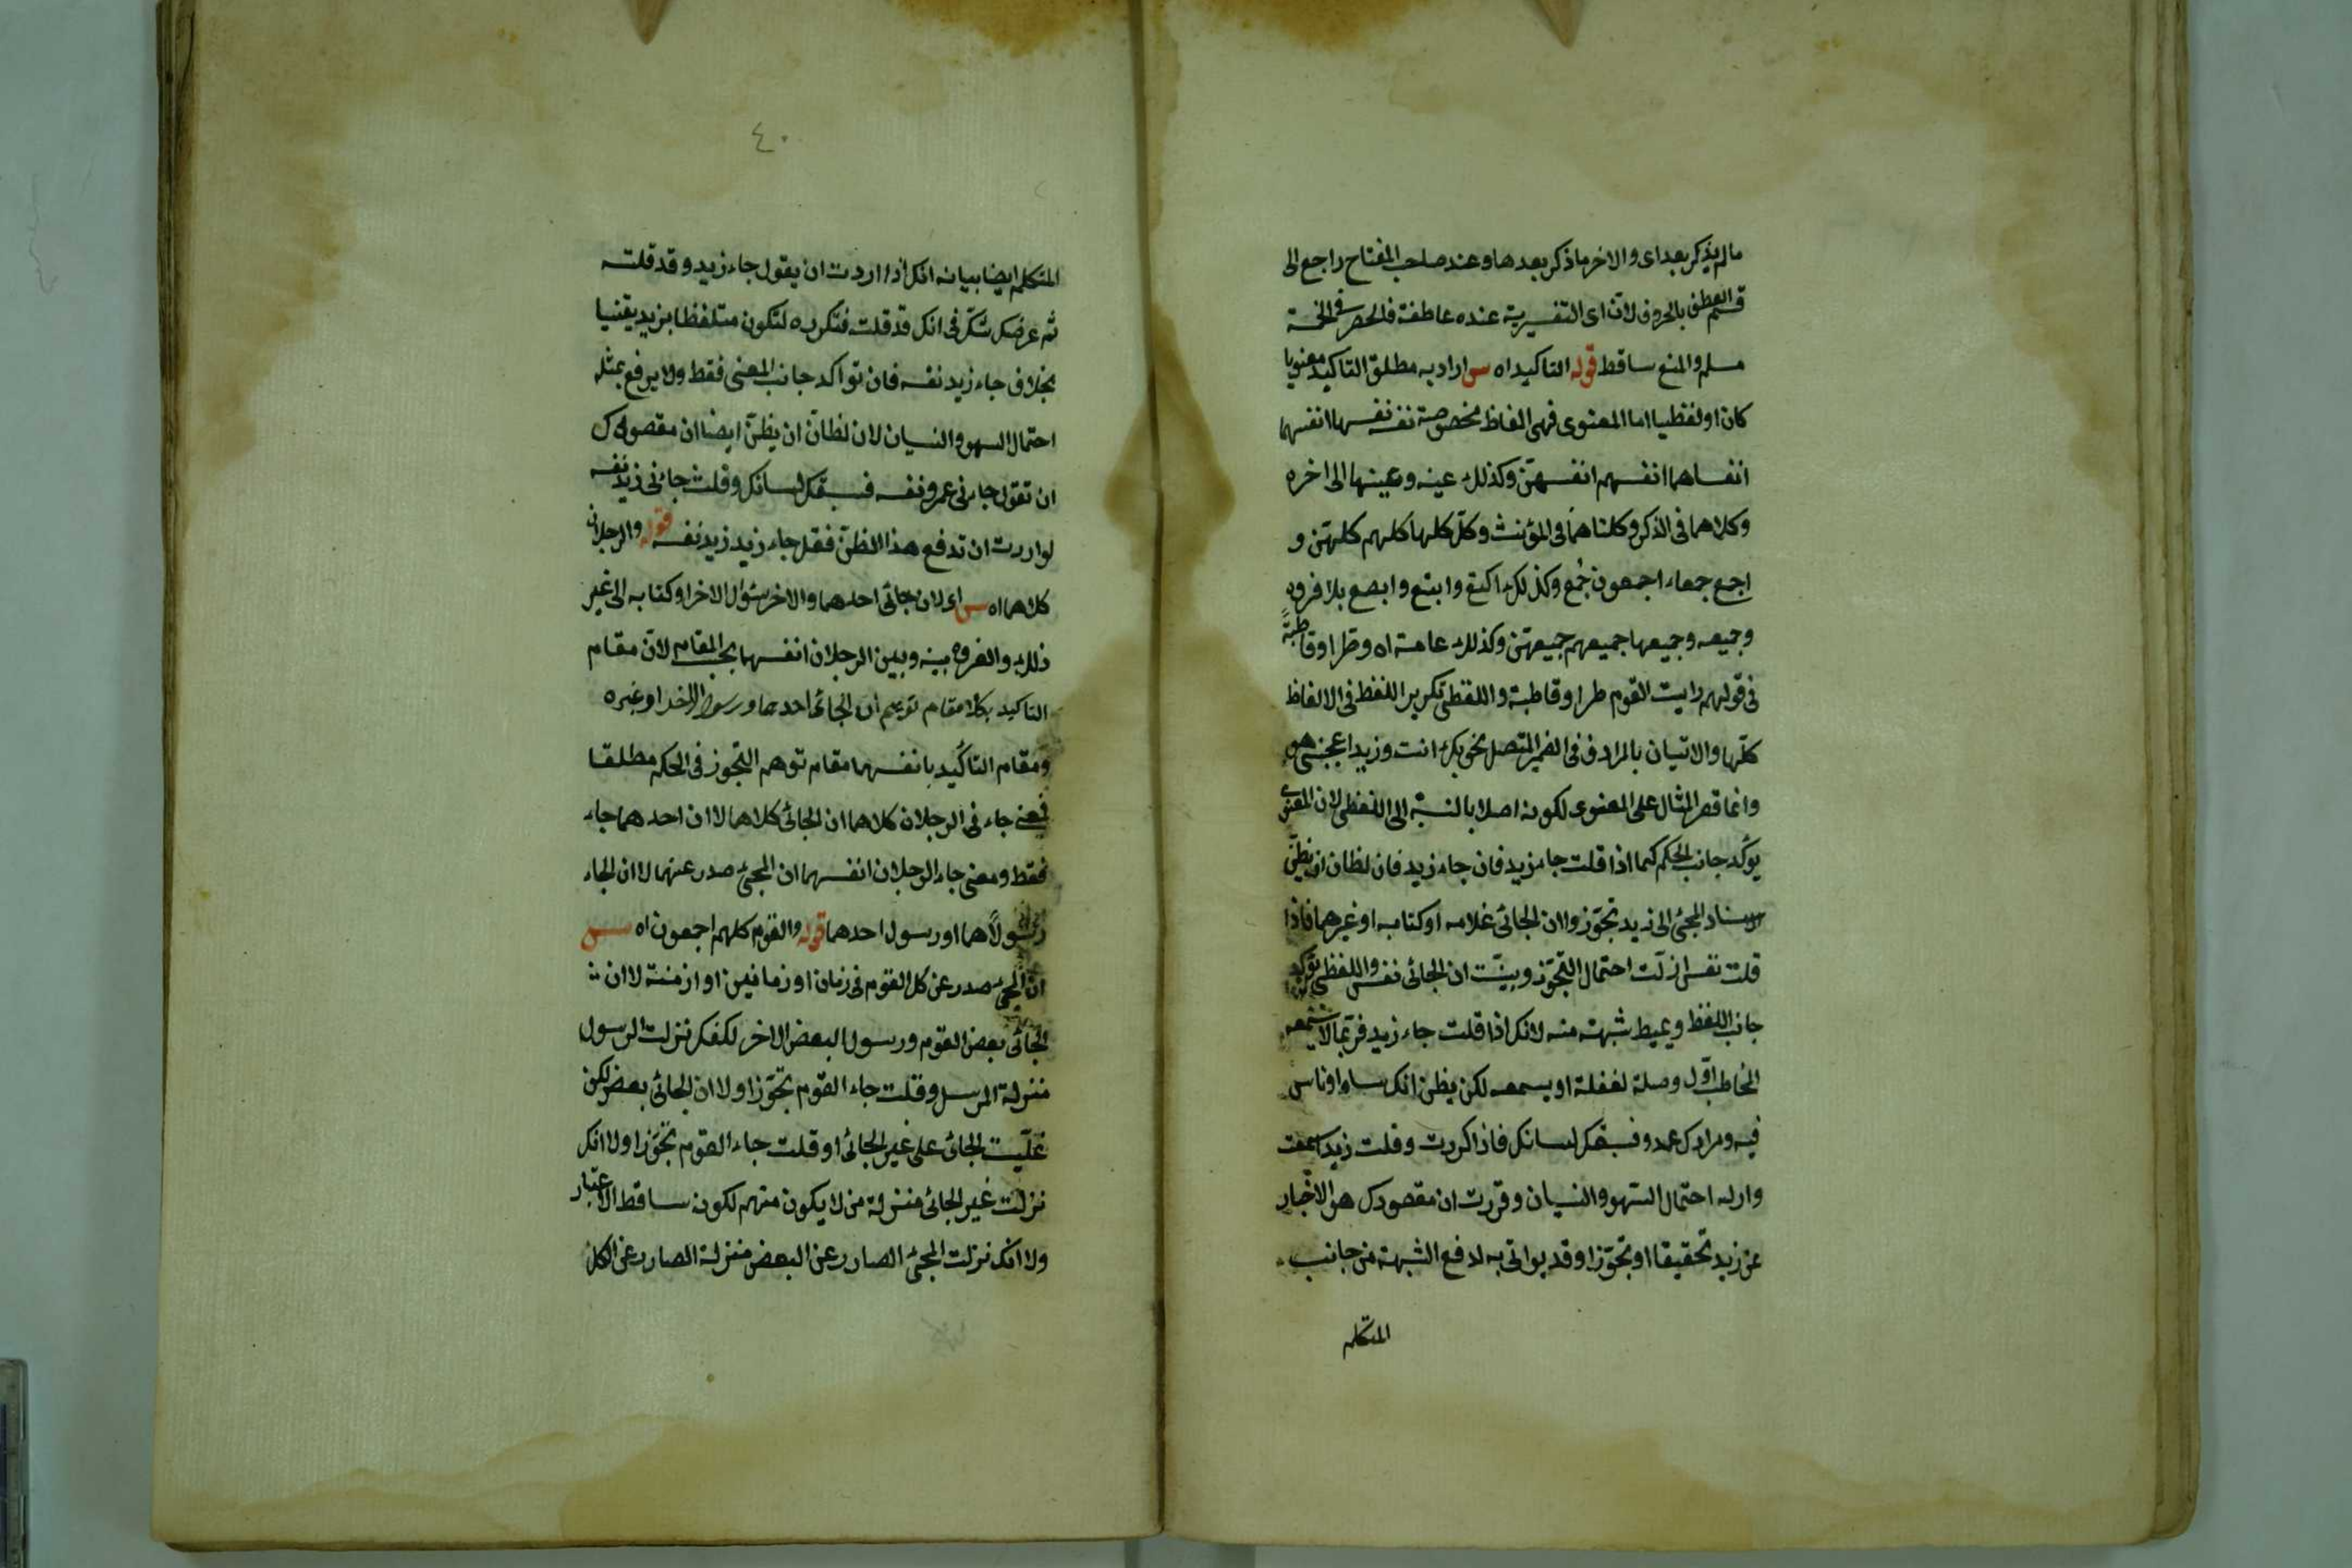 مالم يذكر بعد اى والاخر ما ذكر بعدها وعند صاحب المفتاح راجع الى
قسم العطف بالحروف لان اى التفسيرية عنده عاطفة فالحصر فى الخمسة
مسلم والمنع ساقط قوله التاكيد اه س اراد به مطلق التاكيد معنويا
كان او لفظيا اما المعنوى فهى الفاظ مخصوصة نفسه نفسها انفسهما
انفساهما انفسهم انفسهن وكذلك عينه وعينها الى اخره
وكلاهما فى الذكر وكلتاهما فى المؤنث وكل كلها كلهم كلهن و
اجمع جمعاء اجمعون جُمع وكذلك اكتع وابتع وابصع بلا فرق
وجميعه وجميعها جميعهم جميعهن وكذلك عامة اه وطرا وقاطبةً
فى قولهم رايت القوم طرا وقاطبة واللفظى تكرير اللفظ فى الالفاظ
كلها والاتيان بالمرادف فى الضمير المتصل نحو بك انت وزيد اعجبنى هو
وانما قصر المثال على المعنوى لكونه اصلا بالنسبة الى اللفظى لان المعنوى
يؤكد جانب الحكم كما اذا قلت جاء زيد فان جاء زيد فان لظان ان يظن
اسناد المجئ الى زيد تجوّز وان الجائى غلامه او كتابه او غيرهما فاذا
قلت نفسه ازلت احتمال التجوّز وبينت ان الجائى نفسه واللفظى يؤكد
جانب اللفظ ويميط شبهته منه لانك اذا قلت جاء زيد فربما لا يسمعه
المخاطب اوّل وصلة لغفلة او يسمعه لكن يظن انك ساه او ناس
فيه ومرادك عمرو فسبقك لسانك فاذا كررت وقلت زيد اسمعت
وازلت احتمال السهو والنسيان وقررت ان مقصودك هو الاخبار
عن زيد تحقيقا او تجوّزا وقد يواتى به لدفع الشبهة من جانب
المتكلم
٤٠
المتكلم ايضا بيانه انك اذا اردت ان يقول جاء زيد وقد قلته
ثم عرضك شكّ فى انك قد قلت فتكرره لتكون متلفظا بزيد يقينا
بخلاف جاء زيد نفسه فان تواكد جانب المعنى فقط ولا يرفع بمثله
احتمال السهو والنسيان لان لظان ان يظن ايضا ان مقصودك
ان تقول جاءنى عمرو نفسه فسبقك لسانك وقلت جائنى زيد نفسه
لو اردت ان تدفع هذا الظن فقل جاء زيد زيد نفسه قوله والرجلان
كلاهما اه س اى لان جائى احدهما والاخر سئول الاخر او كتابه الى غير
ذلك والفرق بينه وبين الرجلان انفسهما بحسب المقام لان مقام
التاكيد بكلا مقام توهم ان الجائى احدهما ورسول الاخر او غيره
ومقام التاكيد بانفسهما مقام توهم التجوز فى الحكم مطلقا
فمعنى جاءنى الرجلان كلاهما ان الجائى كلاهما لا ان احدهما جاء
فقط ومعنى جاء الرجلان انفسهما ان المجئ صدر عنهما لا ان الجاء
رسولاهما او رسول احدهما قوله والقوم كلهم اجمعون اه س
ان المجئ صدر عن كل القوم فى زمان او زمانين او ازمنة لا ان
الجائى بعض القوم ورسول البعض الاخر لكنك نزلت الرسول
منزلة المرسل وقلت جاء القوم تجوّزا ولا ان الجائى بعض لكن
غلّبت الجائى على غير الجائى او قلت جاء القوم تجوّزا ولا انك
نزلت غير الجائى منزلة من لا يكون منهم لكونه ساقط الاعتبار
ولا انك نزلت المجئ الصادر عن البعض منزلة الصادر عن الكل